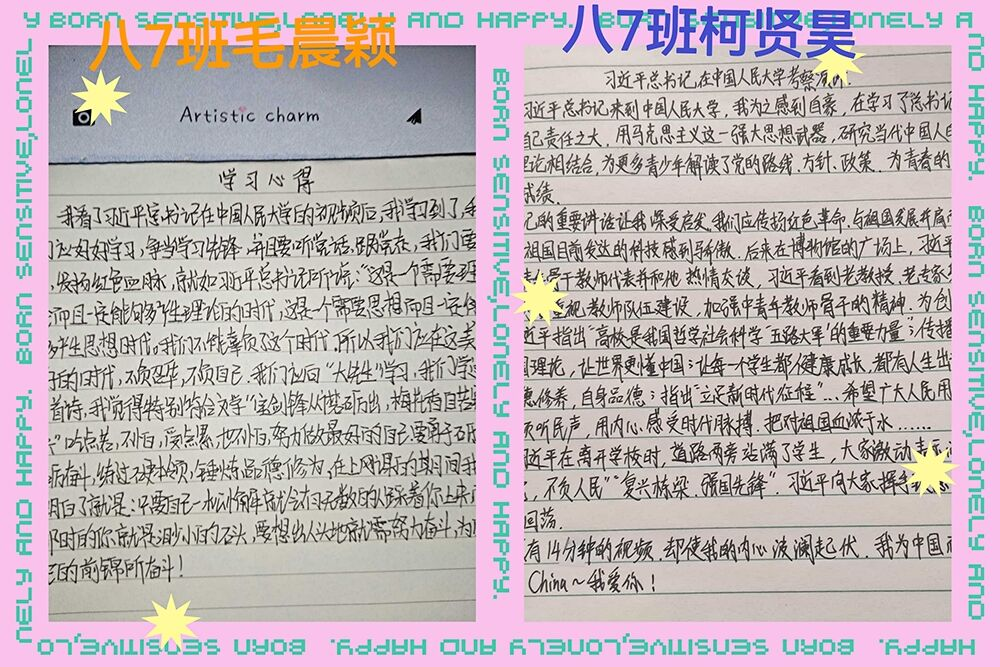 Y BORN SENSITIVE,LONELY AND HAPPY. BORN SENSITIVE,LONELY A
八7班毛晨颖
Artistic charm
学习心得
我看了习近平总书记在中国人民大学的视频后,我学习到了,我
们应好好学习,争当学习先锋,并且要听党话,跟党走,我们要
发扬红色血脉,就如习近平总书记所说:"这是一个需要理
论而且一定能够产生理论的时代,这是一个需要思想而且一定能
够产生思想时代,我们不能辜负了这个时代,所以我们应在这美
好的时代,不负韶华,不负自己.我们应向"大先生"学习,我们学过
首诗,我觉得特别符合文字"宝剑锋从磨砺出,梅花香自苦寒
吃点苦,不怕,受点累,也不怕,努力做最好的自己要勇于
奋斗,练过硬本领,锤炼品德修为,在上网课的期间我
明白了就是:只要自己一松懈你就会有无数的人踩着你上来
那时的你就是渺小的石头,要想出人头地就需努力奋斗,为
的前锦所奋斗!
八7班柯贤昊
习近平总书记在中国人民大学考察
习近平总书记来到中国人民大学,我为之感到自豪,在学习了总书记
自己责任之大,用马克思主义这一强大思想武器,研究当代中国人
理论相结合,为更多青少年解读了党的路线、方针、政策,为青春的
成绩.
记的重要讲话让我深受启发.我们应传扬红色革命,与祖国发展并肩
祖国目前发达的科技感到骄傲.后来在博物馆的广场上,习近平
骨干教师代表并和他 热情交谈,习近平看到老教授、老专家
视教师队伍建设,加强中青年教师骨干的精神.为创
近平指出"高校是我国哲学社会科学'五路大军'的重要力量;传播
国理论,让世界更懂中国;让每一个学生都健康成长,都有人生出
德修养,自身品德;指出"立足新时代征程"...希望广大人民用
倾听民声,用内心感受时代脉搏,把对祖国血浓于水......
习近平在离开学校时,道路两旁站满了学生,大家激动
,不负人民""复兴栋梁、强国先锋".习近平向大家挥手
回荡.
有14分钟的视频.却使我的内心波澜起伏.我为中国
China~我爱你!
BORN SENSITIVE,LONELY AND HAPPY.